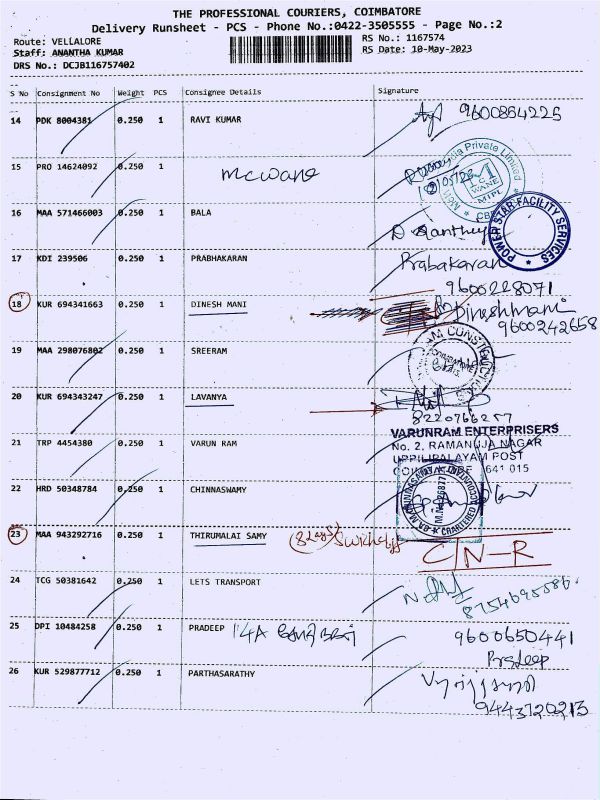 THE PROFESSIONAL COURIERS, COIMBATORE
Delivery Runsheet - PCS - Phone No.:0422-3505555 - Page No.:2
Route: VELLALORE
RS No.: 1167574
Staff: ANANTHA KUMAR
RS Date: 10-May-2023
DRS No.: DCJB116757402
S No Consignment No Weight PCS Consignee Details Signature
14 PDK 8004381 0.250 1 RAVI KUMAR 9600864225
15 PRO 14624092 0.250 1 mcwane
16 MAA 571466003 0.250 1 BALA
POWER STAR FACILITY SERVICES
17 KDI 239506 0.250 1 PRABHAKARAN Prabakaran
9600228071
18 KUR 694341663 0.250 1 DINESH MANI Dineshmani
9600242658
19 MAA 298076802 0.250 1 SREERAM
COIMBATORE
20 KUR 694343247 0.250 1 LAVANYA
8220766257
VARUNRAM ENTERPRISERS
21 TRP 4454380 0.250 1 VARUN RAM No. 2, RAMANUJA NAGAR
UPPILIPALAYAM POST
641 015
22 HRD 50348784 0.250 1 CHINNASWAMY
M.No.26877
CHARTERED ACCOUNTANT
23 MAA 943292716 0.250 1 THIRUMALAI SAMY C/N-R
24 TCG 50381642 0.250 1 LETS TRANSPORT
25 DPI 10484258 0.250 1 PRADEEP 14A 9600650441
Pradeep
26 KUR 529877712 0.250 1 PARTHASARATHY
9443720213